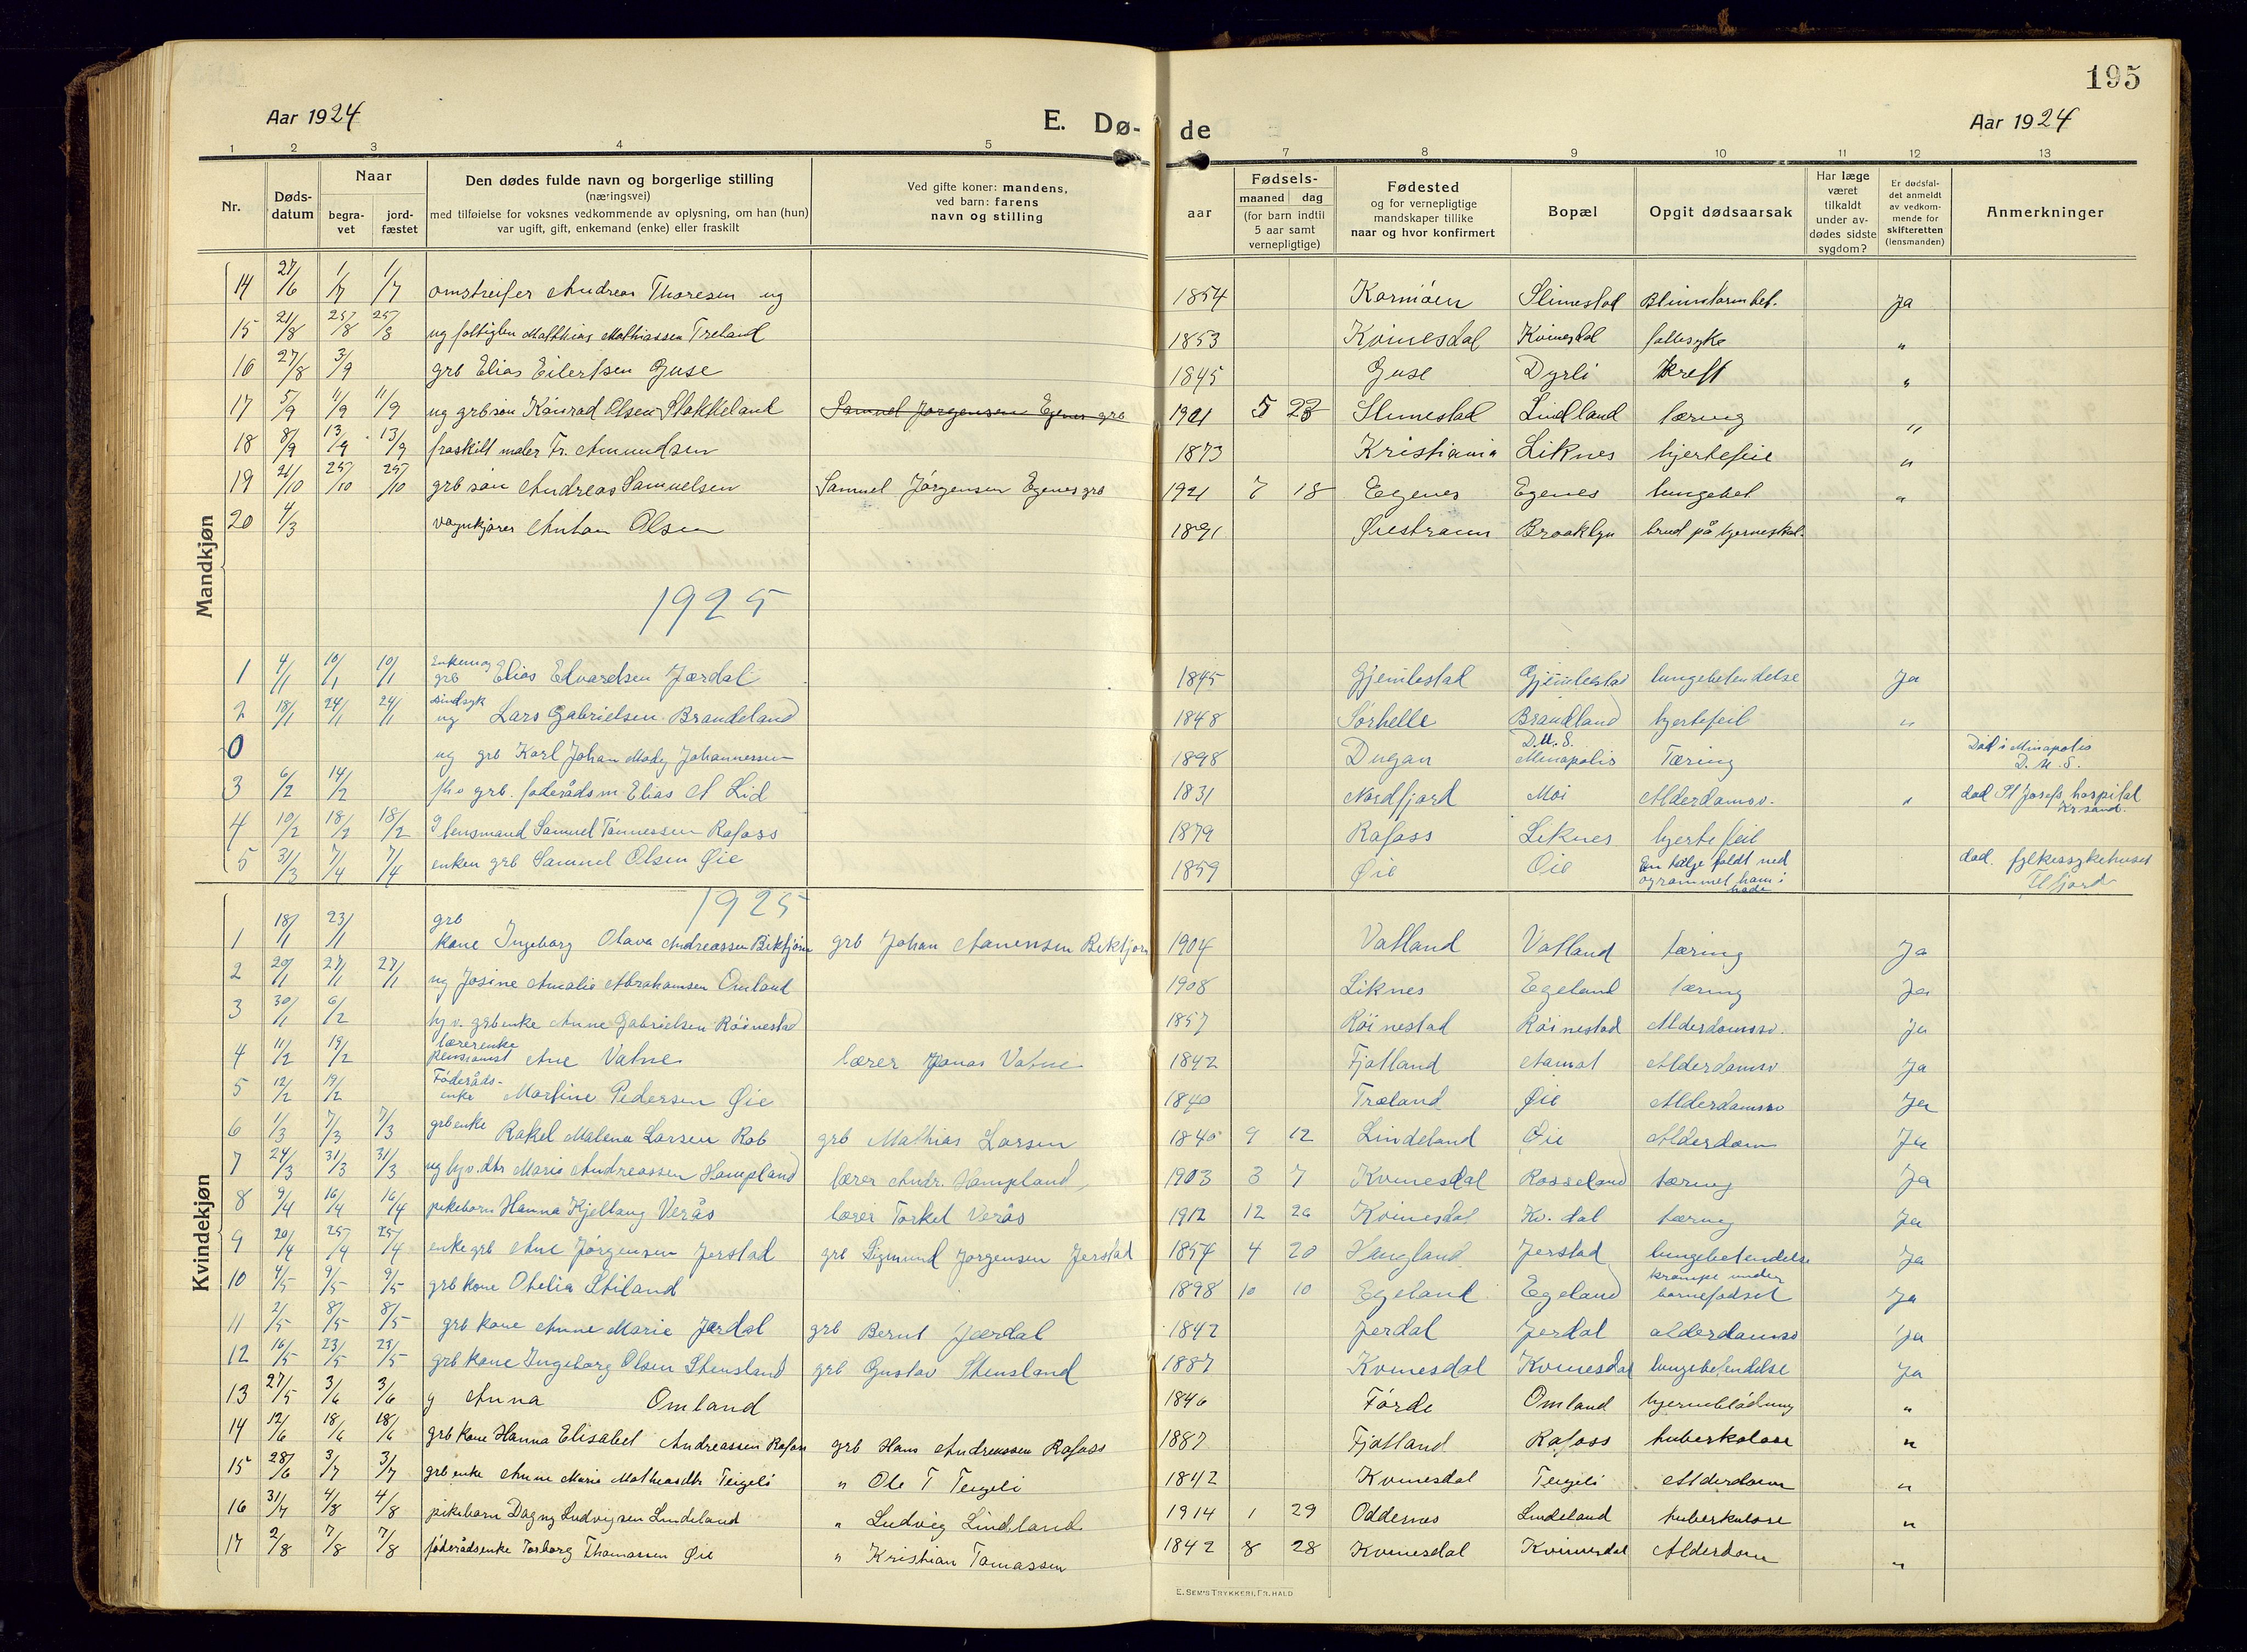 195
Aar 1924
E. Dø-
de
Aar 1924
1 2 3 4 5 7 8 9 10 11 12 13
Nr.
Døds-
datum
Naar
begra-
vet
jord-
fæstet
Den dødes fulde navn og borgerlige stilling
(næringsvei)
med tilføielse for voksnes vedkommende av oplysning, om han (hun)
var ugift, gift, enkemand (enke) eller fraskilt
Ved gifte koner: mandens,
ved barn: farens
navn og stilling
aar
Fødsels-
maaned dag
(for barn indtil
5 aar samt
vernepligtige)
Fødested
og for vernepligtige
mandskaper tillike
naar og hvor konfirmert
Bopæl
Opgit dødsaarsak
Har læge
været
tilkaldt
under av-
dødes sidste
sygdom?
Er dødsfal-
det anmeldt
av vedkom-
mende for
skifteretten
(lensmanden)
Anmerkninger
Mandkjøn
14 27/6 1/7 1/7 omstreifer Andreas Thoresen ug 1854 Karmöen Slimestad Blinntarmbet. Ja
15 21/8 25/8 25/8 ug fattiglem Mathias Mathiassen Treland 1853 Kvinesdal Kvinesdal fallesyke "
16 27/8 3/9 grb Elias Eilertsen Guse 1845 Guse Dyrli Kreft "
17 5/9 11/9 11/9 ug grbsön Konrad Olsen Stakkeland Samuel Jørgensen Egenes grb 1901 5 23 Slimestad Lindland tæring "
18 8/9 13/9 13/9 fraskilt maler Fr. Amundsen 1873 Kristiania Liknes hjertefeil "
19 21/10 25/10 25/10 grb sön Andreas Samuelsen Samuel Jörgensen Egenes grb 1921 7 18 Egenes Egenes lungebet "
20 4/3 vognkjører Anton Olsen 1891 Øiestrann Brooklyn brud på hjerneskal.
1925
1 4/1 10/1 10/1 Enkem og grb Elias Edvardsen Jærdal 1845 Gjemlestad Gjemlestad lungebetendelse Ja
2 18/1 24/1 24/1 sindsyk ug Lars Gabrielsen Brandeland 1848 Sørhelle Brandland hjertefeil "
0 ug grb Karl Johan Mody Johannessen 1898 Dugan D.U.S. Minapolis Tæring Död i Minapolis D.U.S.
3 6/2 14/2 fhv grb. föderådsm. Elias A Lid 1831 Nordfjord Moi Alderdomsv. " död St Josefs hospital Kr.sand.
4 10/2 18/2 18/2 g lensmand Samuel Tönnessen Rafoss 1879 Rafoss Liknes hjertefeil
5 31/3 7/4 7/4 enkem grb Samuel Olsen Øie 1859 Øie Øie En talge faldt ned og rammet ham i hode död. fylkessykehuset Flfjord
Kvindekjøn
1925
1 18/1 23/1 grb kone Ingeborg Olava Andreassen Bektjörn grb Johan Aanensen Bektjörn 1904 Vatland Vatland tæring Ja
2 20/1 27/1 27/1 ug Josine Amalie Abrahamsen Omland 1908 Liknes Egeland tæring Ja
3 30/1 6/2 hjv. grbenke Anne Gabrielsen Röinestad 1857 Röinestad Röinestad Alderdomsv. Ja
4 11/2 19/2 lærerenke pensionist Ane Vatne lærer Jonas Vatne 1842 Fjotland Aamot Alderdomsv. Ja
5 12/2 19/2 Föderåds-enke Martine Pedersen Øie 1840 Træland Øie Alderdomsv Ja
6 1/3 7/3 7/3 grbenke Rakel Malena Larsen Rob grb Mathias Larsen 1840 9 12 Lindeland Øie Alderdom Ja
7 24/3 31/3 31/3 ug hjv. dtr Marie Andreassen Hampland lærer Andr. Hampland 1903 3 7 Kvinesdal Rosseland tæring Ja
8 9/4 16/4 16/4 pikebarn Hanna Kjellaug Verås lærer Torkel Verås 1912 12 26 Kvinesdal Kv. dal tæring Ja
9 20/4 25/4 25/4 enke grb Ane Jørgensen Jerstad grb Sigmund Jørgensen Jerstad 1854 4 20 Haugland Jerstad lungebetendelse Ja
10 4/5 9/5 9/5 grb kone Otelia Stiland 1898 10 10 Egeland Egeland krampe under barnefødsel Ja
11 2/5 8/5 8/5 grb kone Anne Marie Jerdal grb Bernt Jærdal 1842 Jerdal Jerdal alderdomsv Ja
12 16/5 23/5 23/5 grb kone Ingeborg Olsen Stensland grb Gustav Stensland 1887 Kvinesdal Kvinesdal lungebetendelse Ja
13 27/5 3/6 3/6 g Anna Omland 1846 Förde Omland hjerneblödning "
14 12/6 18/6 18/6 grb kone Hanna Elisabet Andreassen Rafoss grb Hans Andreassen Rafoss 1887 Fjotland Rafoss tuberkulose "
15 28/6 3/7 3/7 grb enke Anne Marie Mathiasdtr Teigeli " Ole T Teigeli 1842 Kvinesdal Teigeli Alderdom "
16 31/7 4/8 4/8 pikebarn Dagny Ludvigsen Lindeland " Ludvig Lindland 1914 1 29 Oddernes Lindeland tuberkulose "
17 2/8 7/8 7/8 föderådsenke Torborg Thomassen Øie " Kristian Tomassen 1842 8 28 Kvinesdal Kvinesdal Alderdom "
E. SEM'S TRYKKERI, FR.HALD